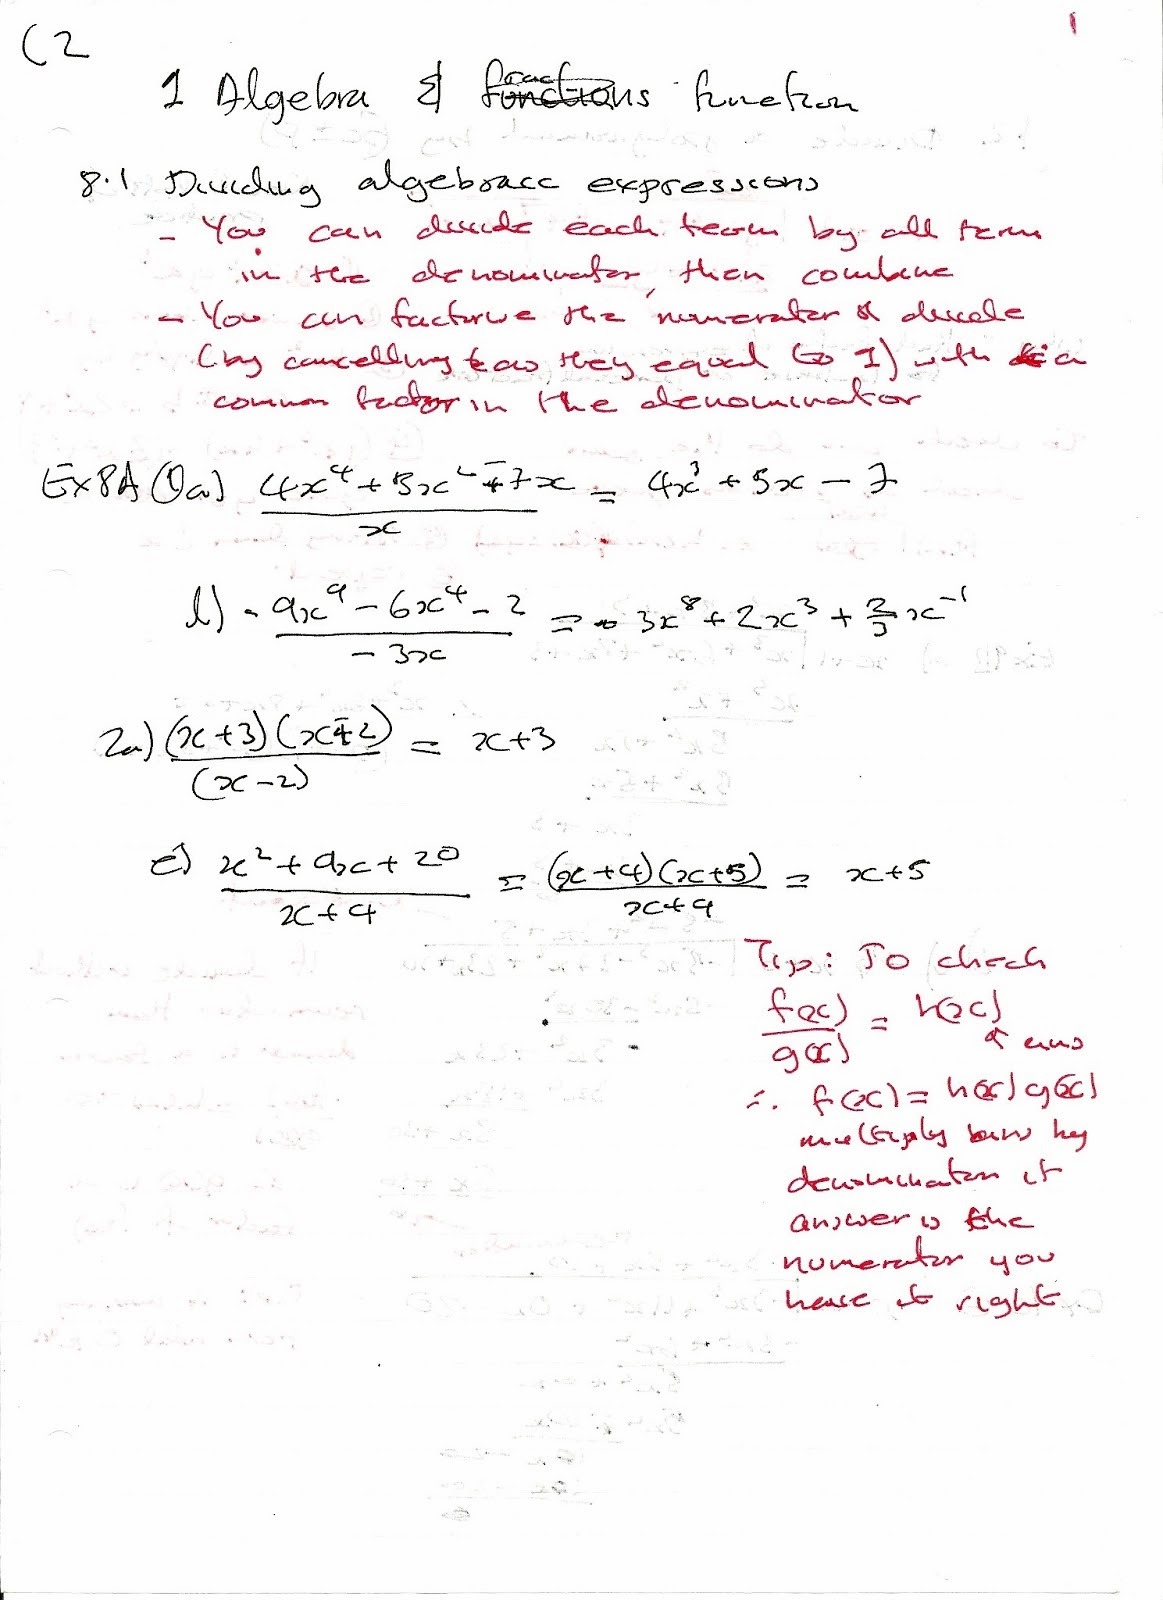 C2
1
1 Algebra & functions function
8.1 Dividing algebraic expressions
- You can divide each term by all term
in the denominator, then combine
- You can factorise the numerator & divide
(by cancelling as they equal to 1) with a
common factor in the denominator
Ex8A (1)a) (4x⁴ + 5x² - 7x)/x = 4x³ + 5x - 7
l) (-9x⁹ - 6x⁴ - 2)/(-3x) = 3x⁸ + 2x³ + 2/3 x⁻¹
2a) (x+3)(x-2)/(x-2) = x+3
e) (x² + 9x + 20)/(x+4) = (x+4)(x+5)/(x+4) = x+5
Tip: To check
f(x)/g(x) = h(x)
↑ ans
∴ f(x) = h(x) g(x)
multiply ans by
denominator if
answer is the
numerator you
have it right